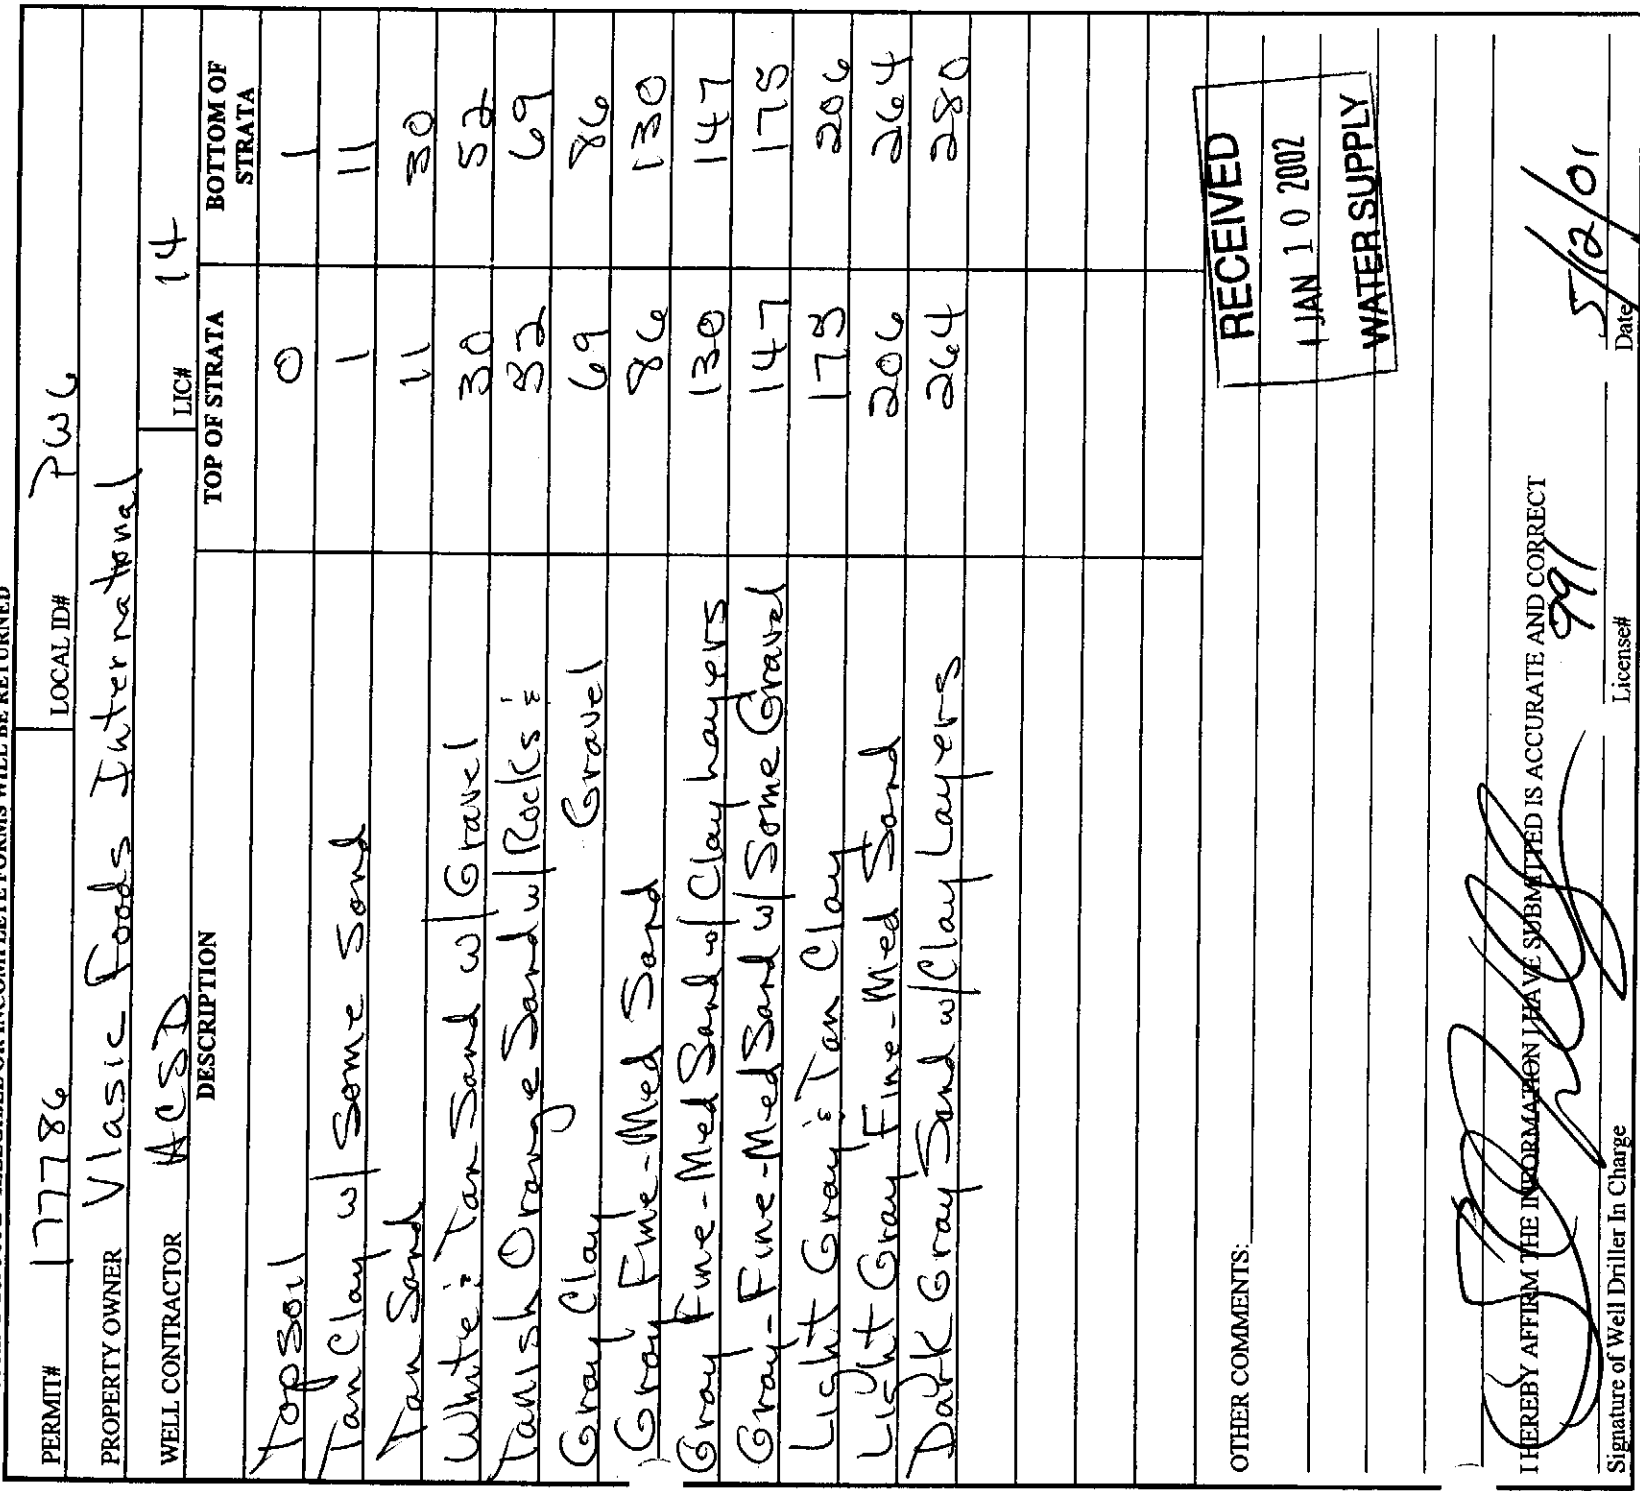 PERMIT# 177786 LOCAL ID# PW6
PROPERTY OWNER Vlasic Foods International
WELL CONTRACTOR ACSD LIC# 14
DESCRIPTION TOP OF STRATA BOTTOM OF STRATA
Topsoil 0 1
Tan Clay w/ Some Sand 1 11
Tan Sand 11 30
White & Tan Sand w/ Gravel 30 52
Tanish Orange Sand w/ Rocks & Gravel 52 69
Gray Clay 69 86
Gray Fine-Med Sand 86 130
Gray Fine-Med Sand w/ Clay Layers 130 147
Gray-Fine-Med Sand w/ Some Gravel 147 175
Light Gray & Tan Clay 175 206
Light Gray Fine-Med Sand 206 264
Dark Gray Sand w/ Clay Layers 264 280
OTHER COMMENTS:
RECEIVED
JAN 10 2002
WATER SUPPLY
I HEREBY AFFIRM THE INFORMATION I HAVE SUBMITTED IS ACCURATE AND CORRECT
991 5/12/01
Signature of Well Driller In Charge License# Date